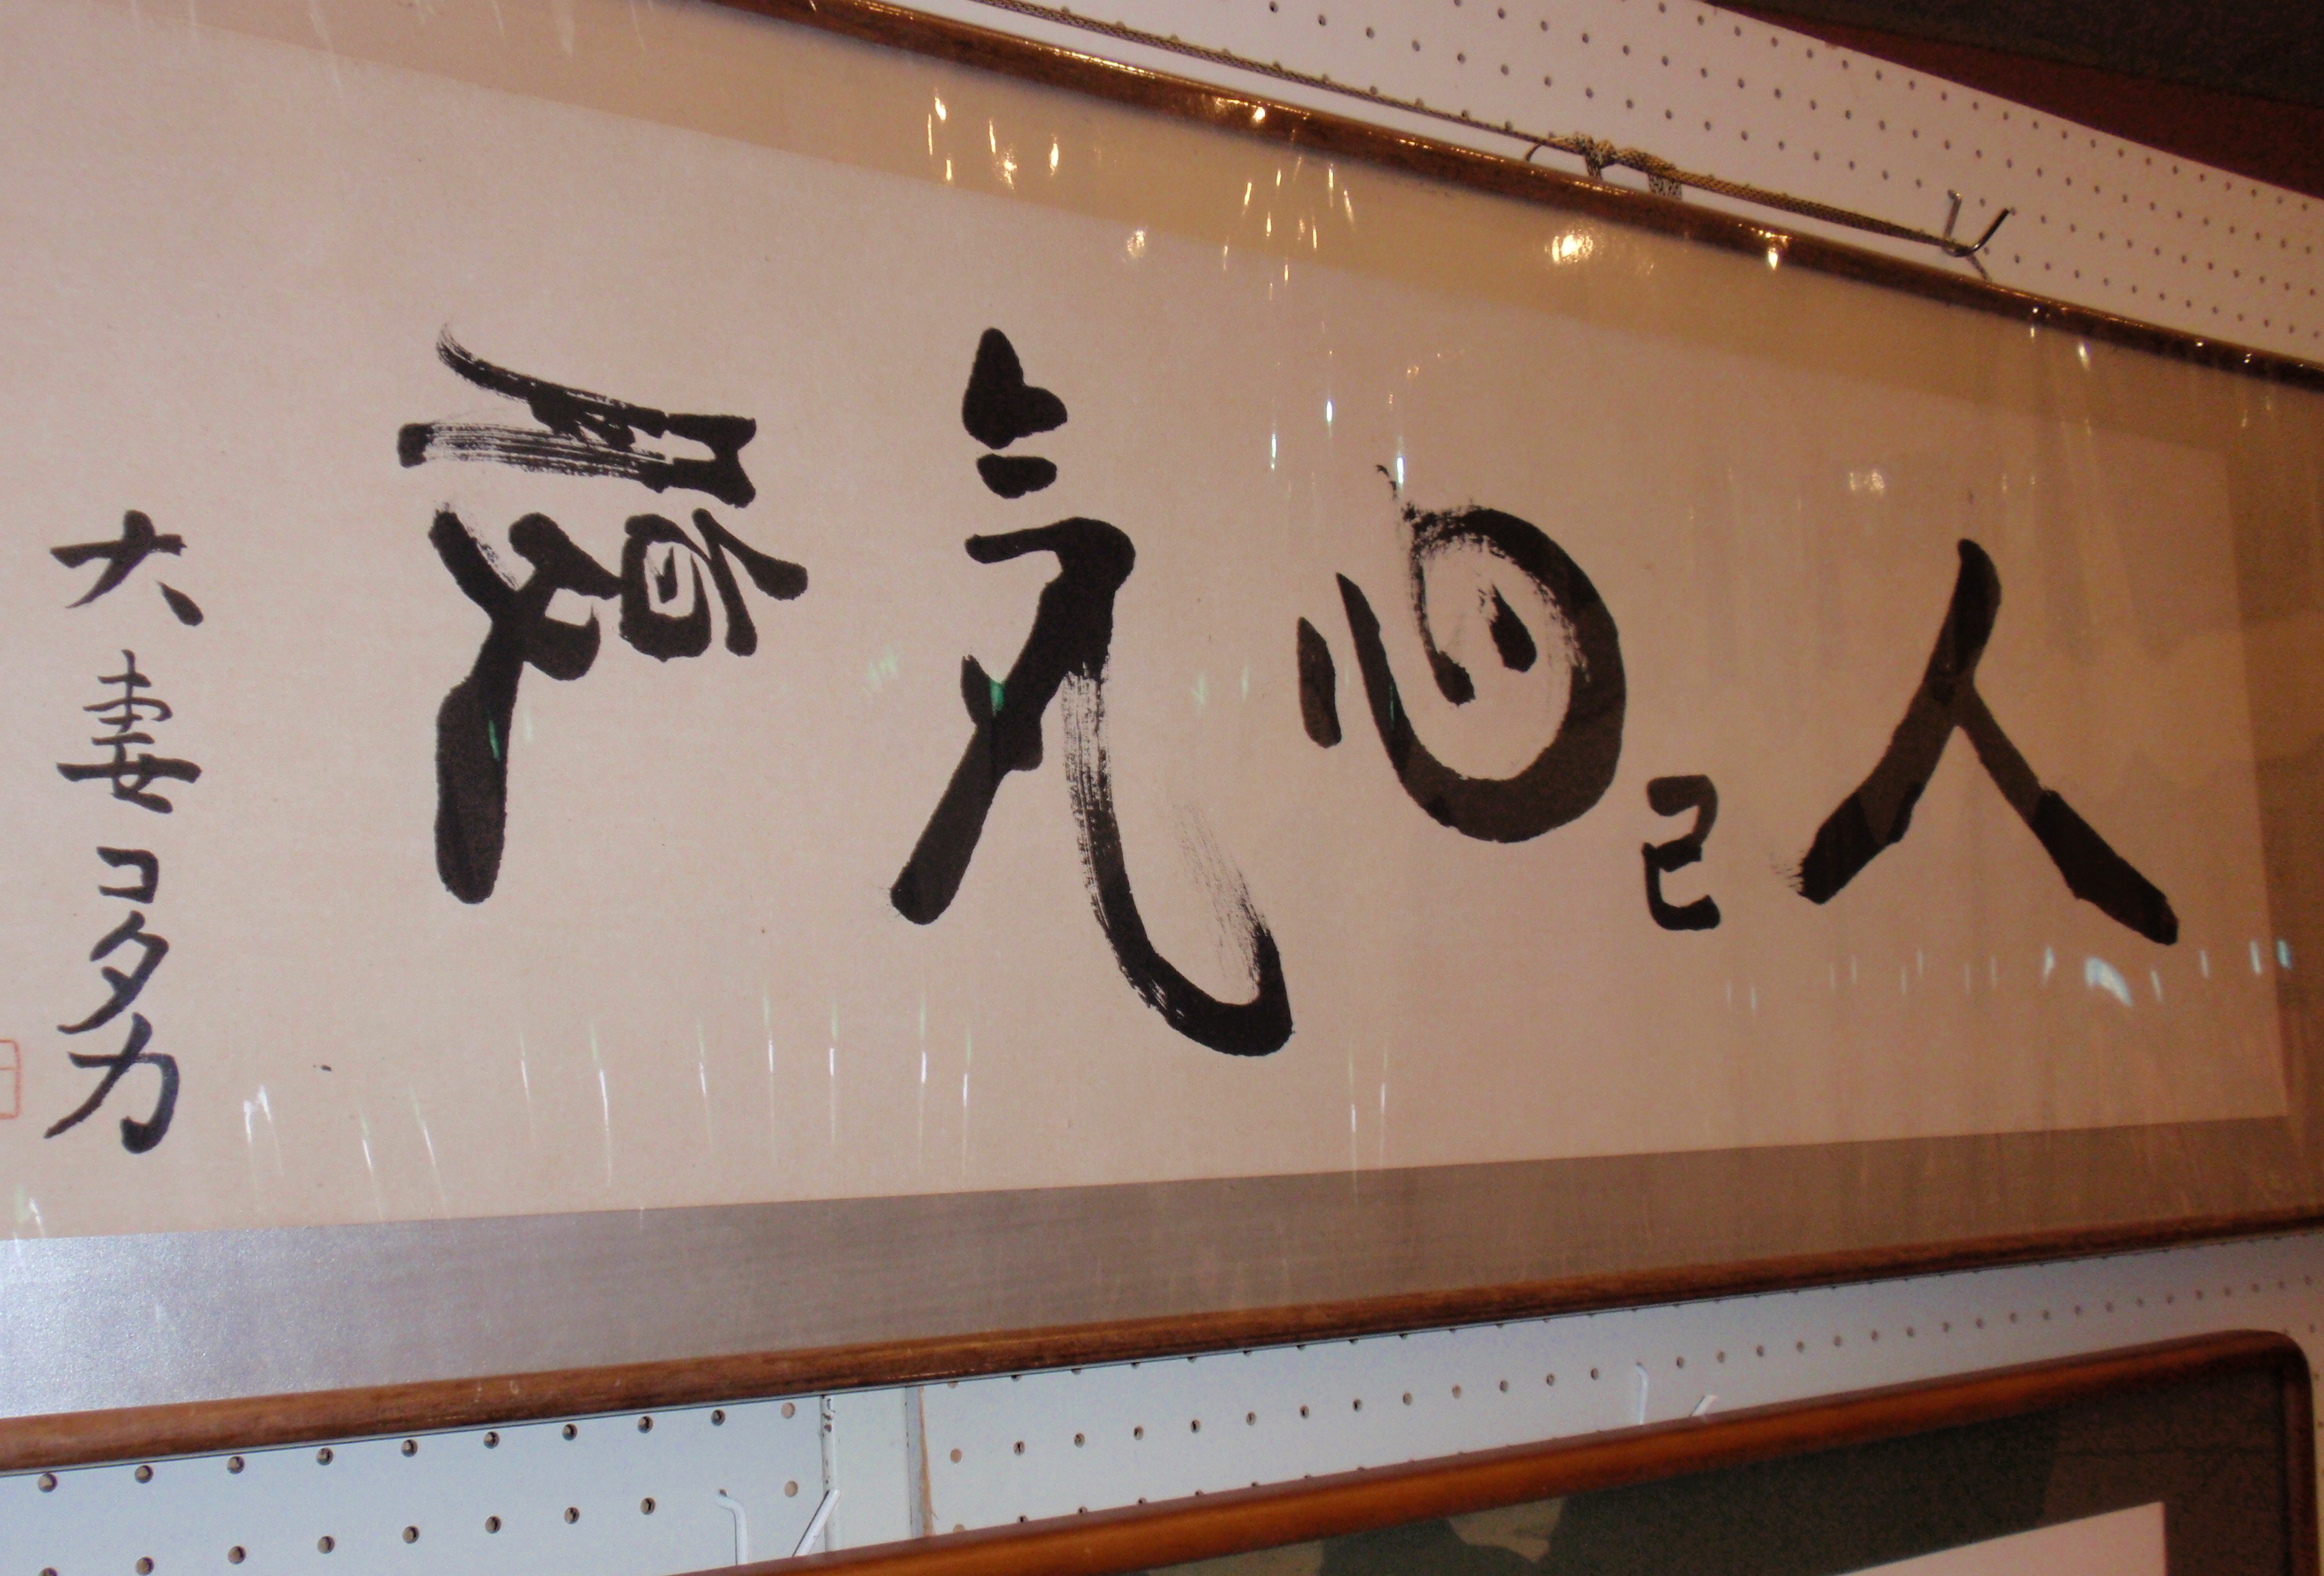 人己心気腹
大妻コタカ